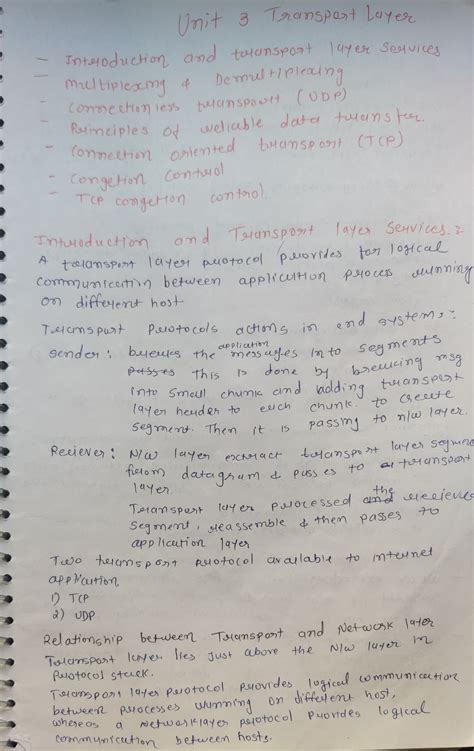 Unit 3 Transport Layer
- Introduction and transport layer services
- Multiplexing & Demultiplexing
- Connectionless transport (UDP)
- Principles of reliable data transfer.
- Connection oriented transport (TCP)
- Congetion control
- TCP congetion control.
Introduction and Transport layer services :
A transport layer protocol provides for logical
communication between application process running
on different host
Transport Protocols actions in end systems :-
Sender : breaks the application messages into segments
passes This is done by breaking msg
into small chunk and adding transport
layer header to each chunk. to create
segment. Then it is passing to n/w layer.
Reciever : N/w layer extract transport layer segment
from datagram & passes to a transport
layer.
Transport layer processed the recieved
segment, reassemble & then passes to
application layer
Two transport protocol available to internet
application
1) TCP
2) UDP
Relationship between Transport and Network layer
Transport layer lies just above the N/w layer in
protocol stack.
Transport layer protocol provides logical communication
between processes running on different host,
whereas a network layer protocol provides logical
communication between hosts.